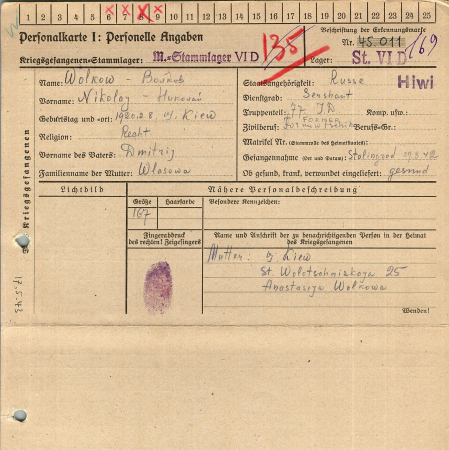 1 2 3 4 5 6 7 8 9 10 11 12 13 14 15 16 17 18 19 20 21 22 23 24 25
Personalkarte I: Personelle Angaben
Beschriftung der Erkennungsmarke
Nr. 45.011
Kriegsgefangenen-Stammlager: M.-Stammlager VI D
135
Lager: St. VI D
169
Hiwi
Name: Wolkow -
Staatsangehörigkeit: Russe
Vorname: Nikolaj
Dienstgrad: Sershant
Geburtstag und -ort: 1920.2.8. g. Kiew
Truppenteil: 77 JD Komp. usw.:
Religion: Recht
Zivilberuf: Former Berufs-Gr.:
Vorname des Vaters: Dmitrij
Matrikel Nr. (Stammrolle des Heimatstaates):
Gefangennahme (Ort und Datum): Stalingrad
Familienname der Mutter: Wlasowa
Ob gesund, krank, verwundet eingeliefert: gesund
Kriegsgefangenen
Lichtbild
Nähere Personalbeschreibung
Größe Haarfarbe Besondere Kennzeichen:
167
Fingerabdruck
des rechten! Zeigefingers
Name und Anschrift der zu benachrichtigenden Person in der Heimat
des Kriegsgefangenen
Mutter: g. Kiew
St. Wolotschniskaja 25
Anastasija Wolkowa
Wenden!
17.5.43